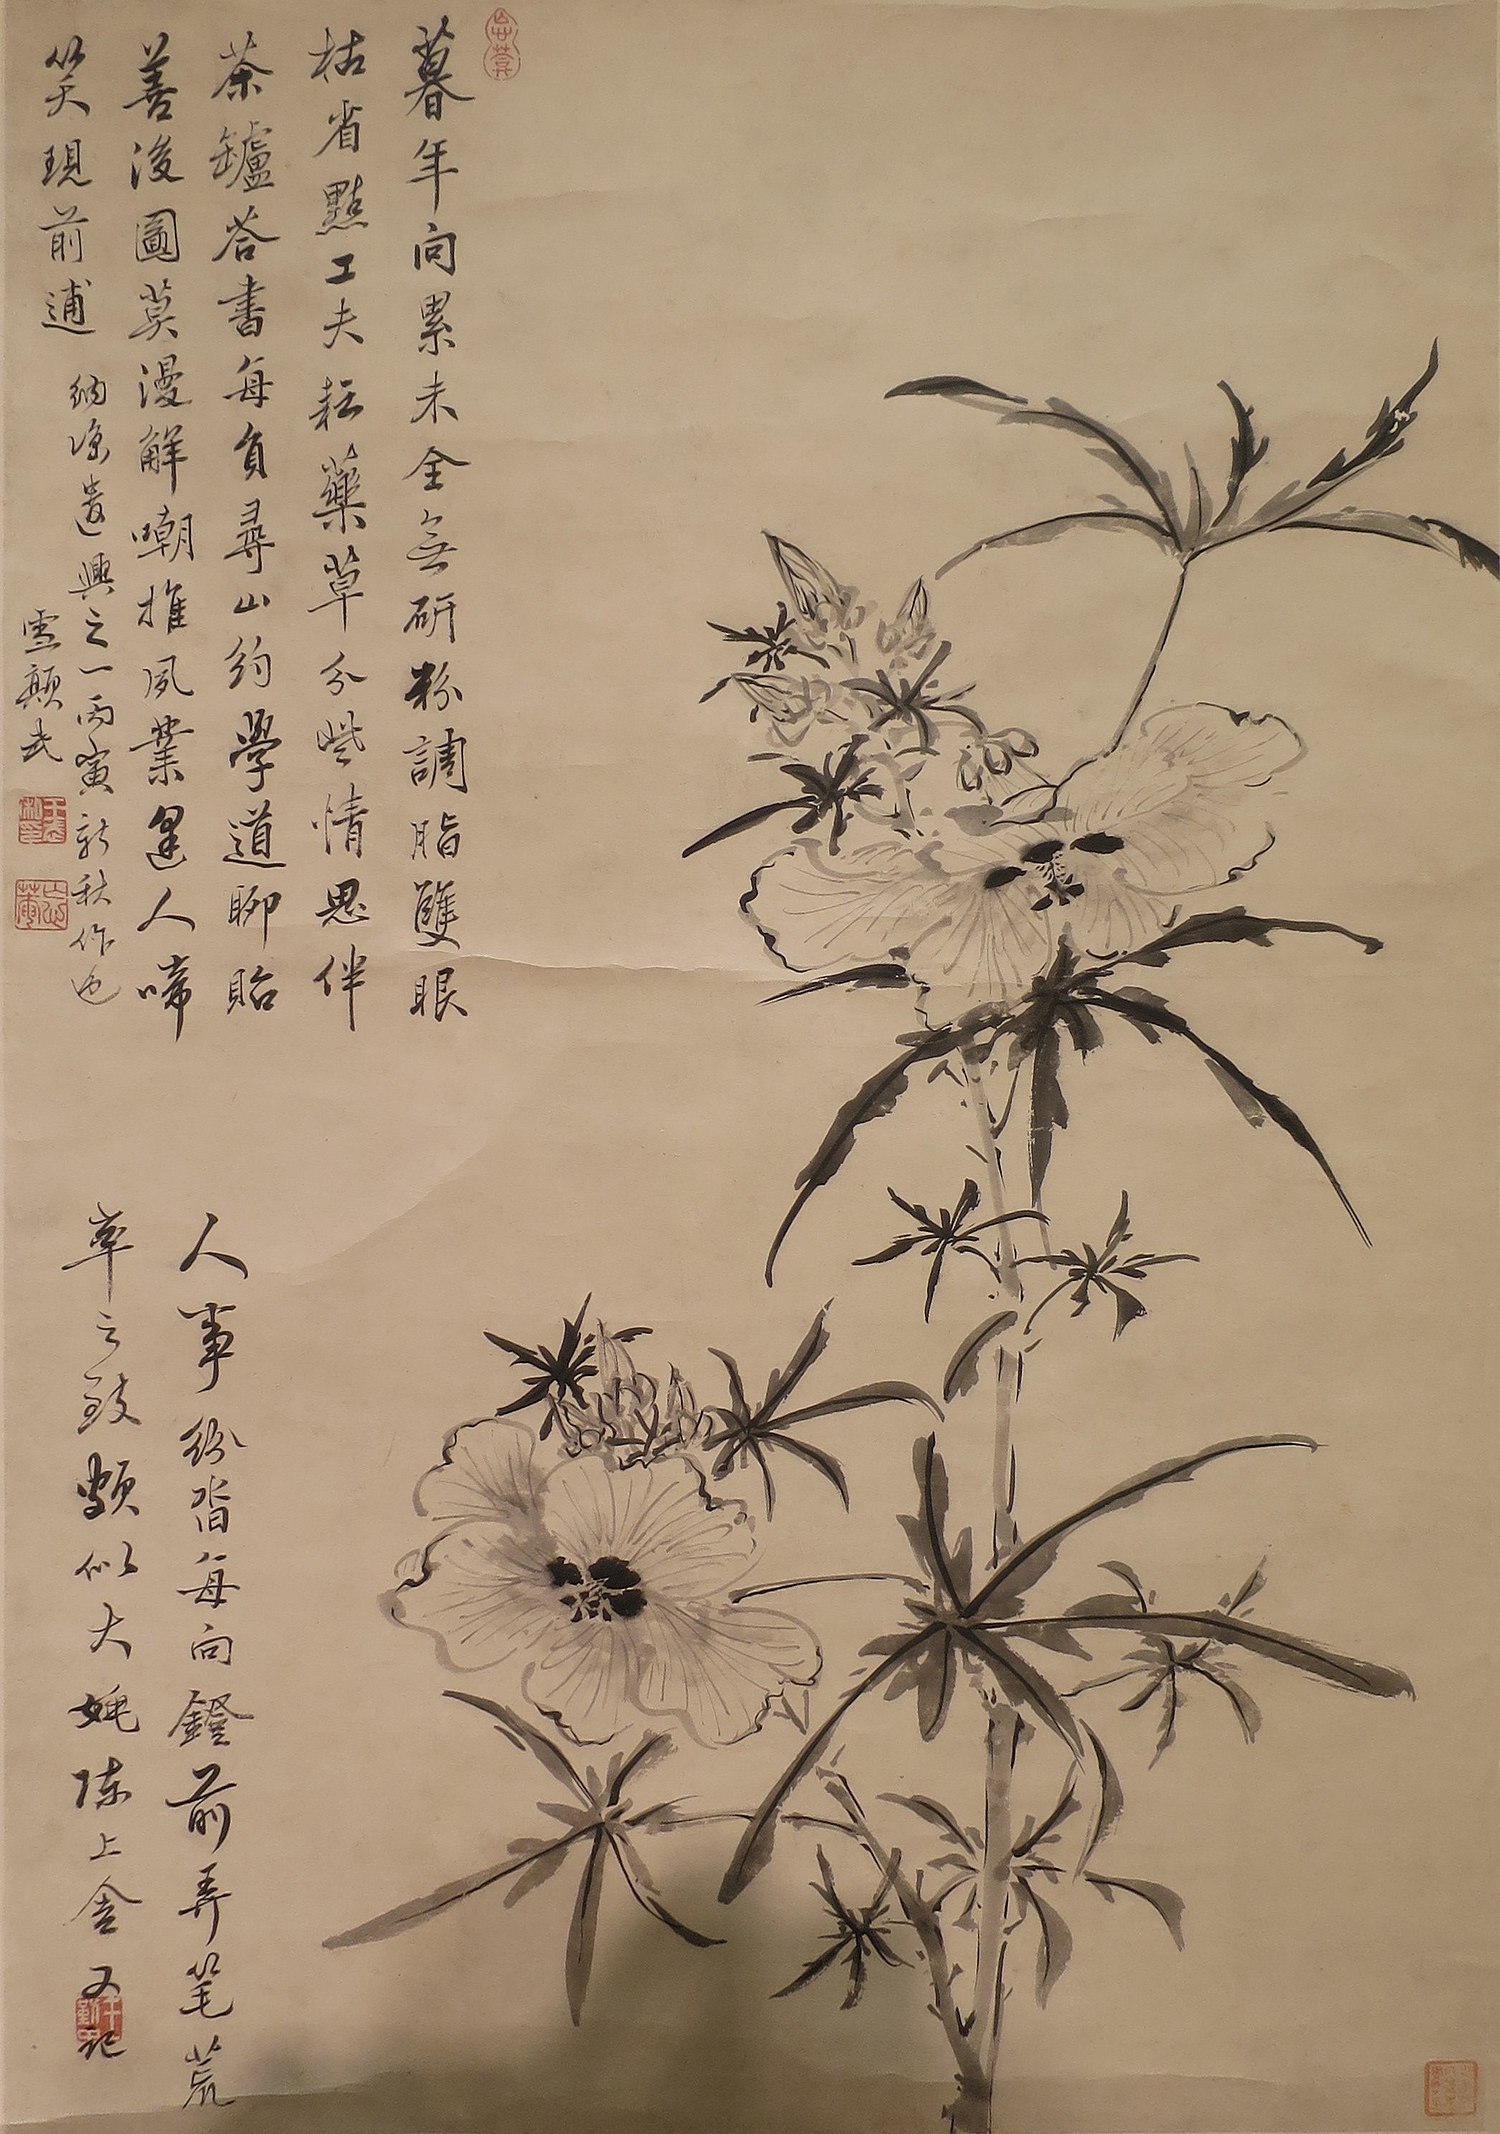 暮年向累未全無研粉調脂雙眼
枯省點工夫耘藥草分些情思伴
茶罏荅書每負尋山約學道聊貽
善後圖莫漫解嘲推夙業逢人啼
笑現前逋
納涼遣興之一丙寅新秋作也
雪顛武
人事紛沓每向鐙前弄筆荒
率之致頗似大
陳上舍又記